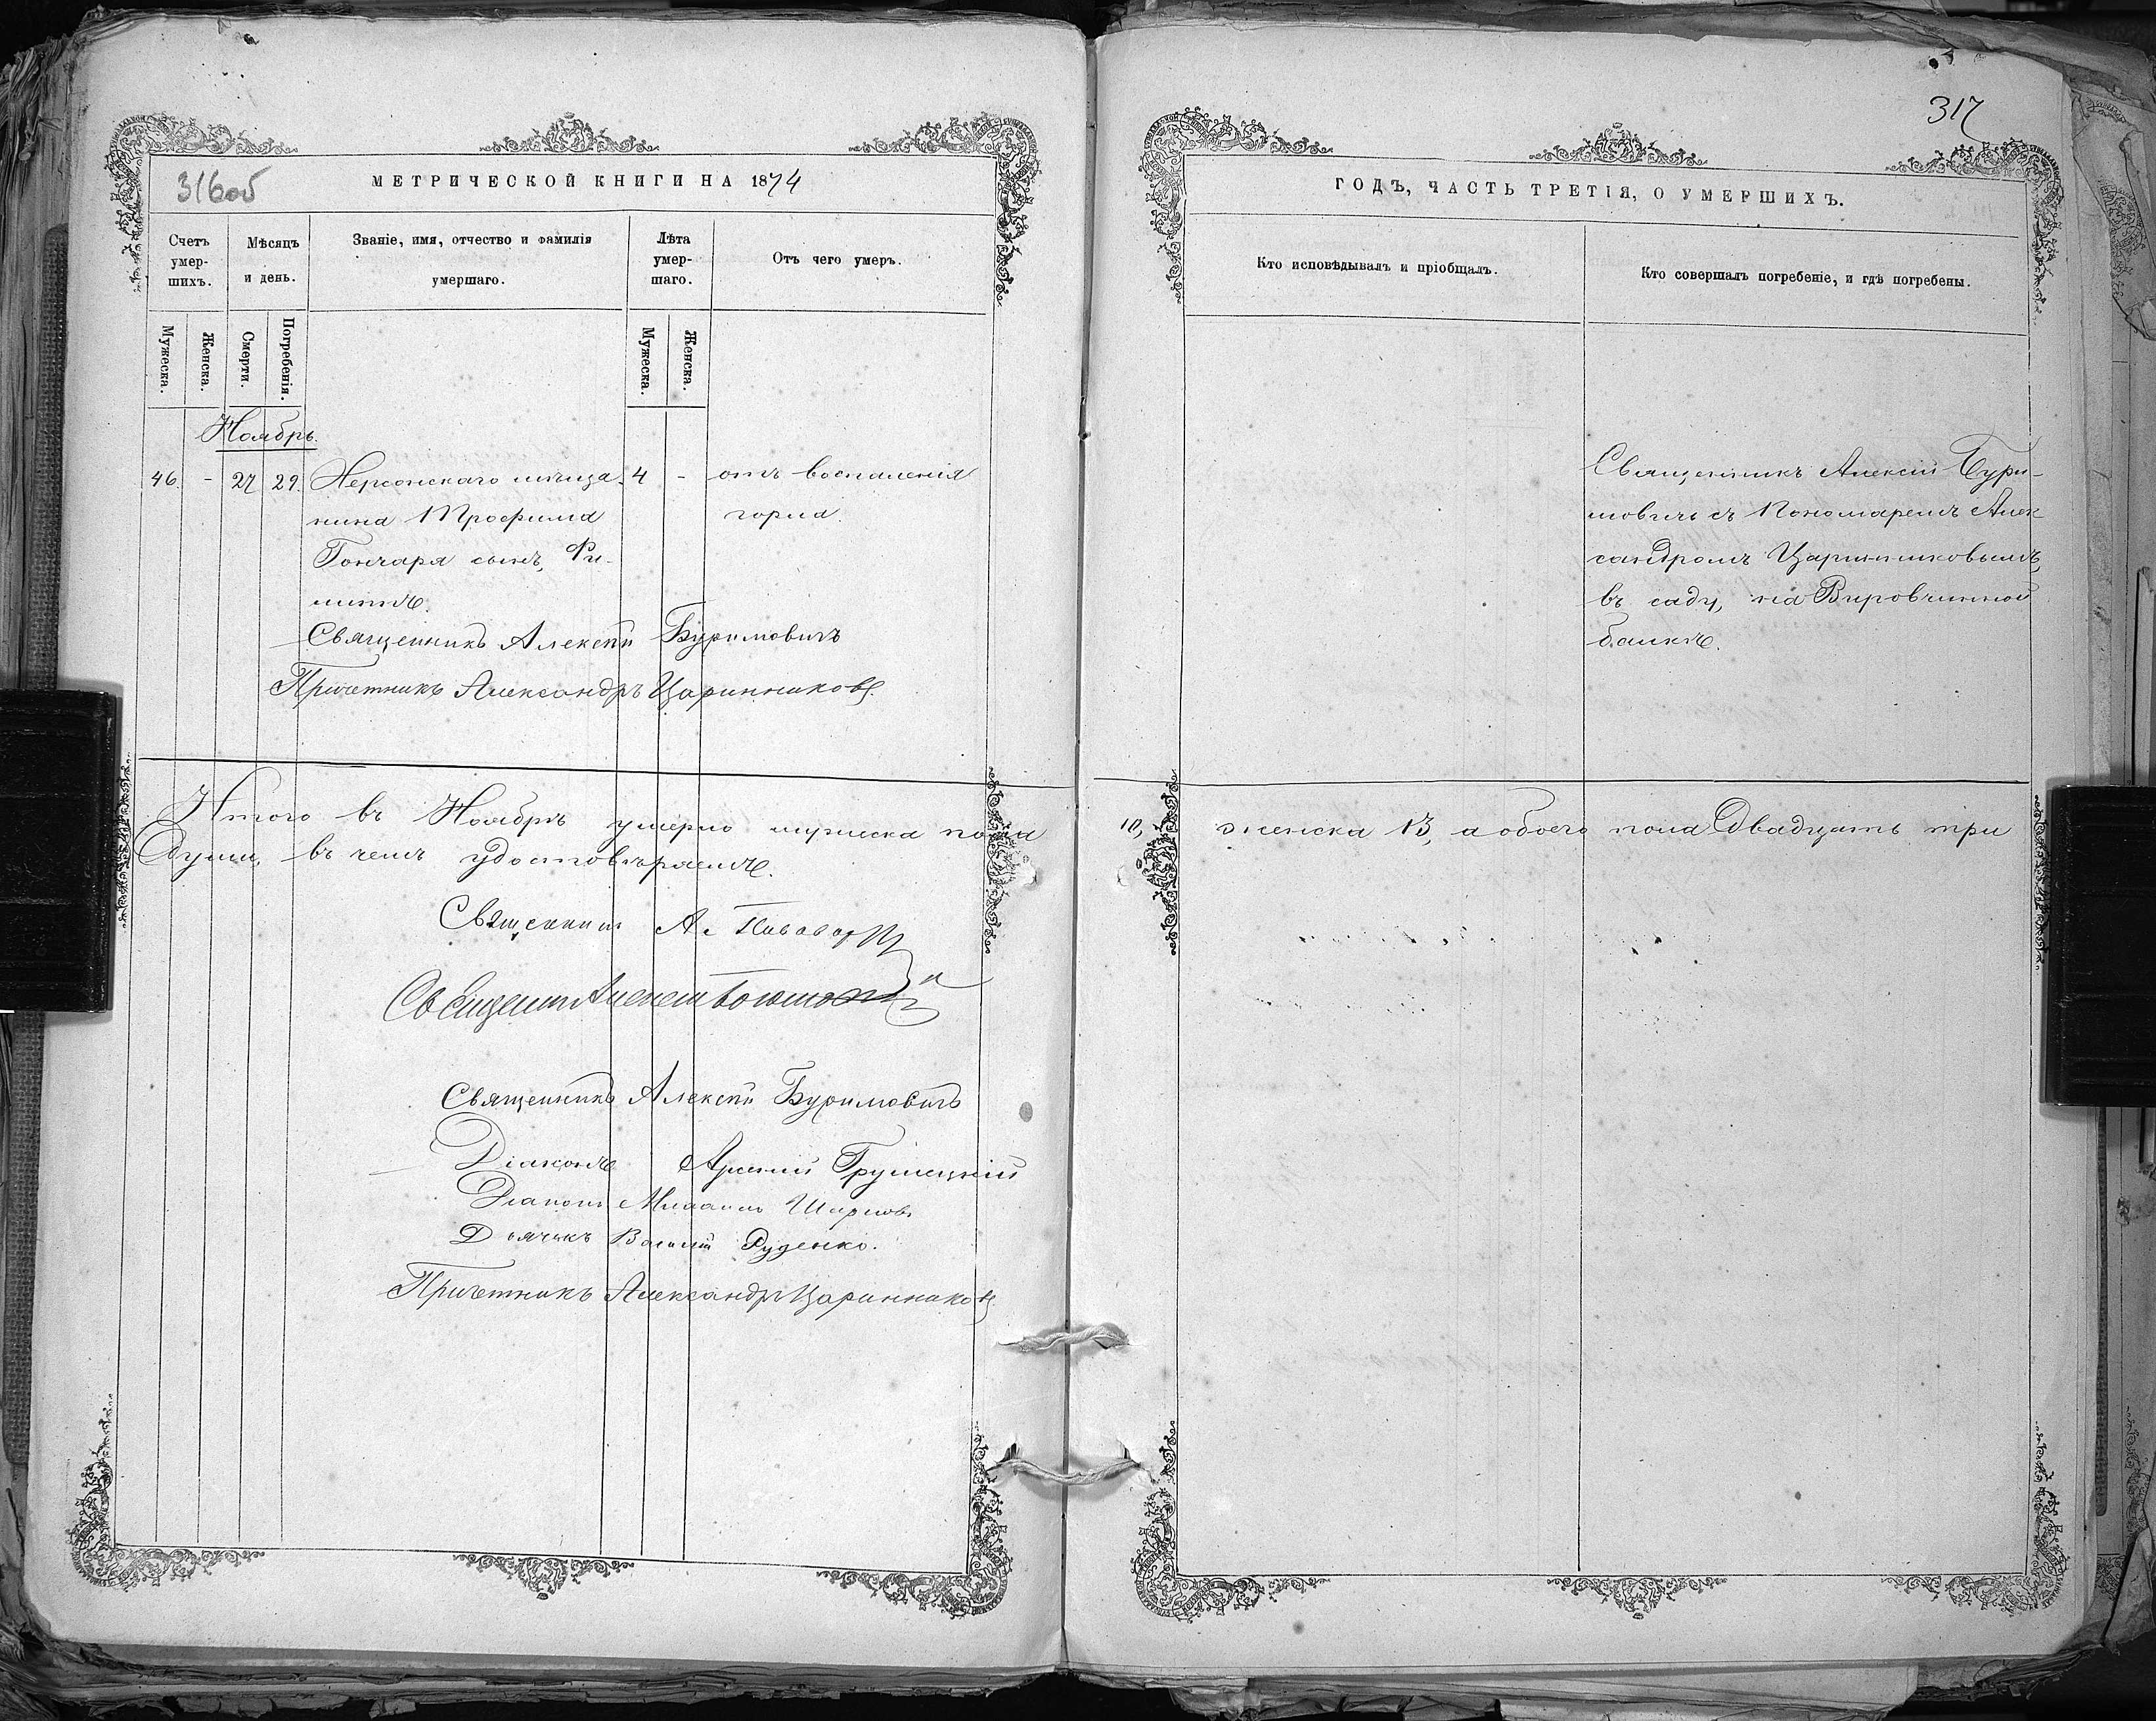 316об
МЕТРИЧЕСКОЙ КНИГИ НА 1874
Счетъ умер-шихъ.
Мѣсяцъ и день.
Званіе, имя, отчество и фамилія умершаго.
Лѣта умер-шаго.
Отъ чего умеръ.
Мужеска.
Женска.
Смерти.
Погребенія.
Мужеска.
Женска.
Ноябрь.
46. - 27 29. Херсонскаго мѣща- 4 - отъ воспаленія
нина Трофима горла.
Гончаря сынъ, Фи-
липпъ.
Священникъ Алексѣй Буримовичъ
Причетникъ Александръ Царинниковъ.
Итого въ Ноябрѣ умерло мужеска пола
души, въ чемъ удостовѣряемъ.
Священникъ А.
Священникъ Алексѣй
Священникъ Алексѣй Буримовичъ
Діаконъ Арсеній Грушецкій
Діаконъ Михаилъ
Дьячекъ Василій Руденко.
Причетникъ Александръ Царинниковъ
317
ГОДЪ, ЧАСТЬ ТРЕТІЯ, О УМЕРШИХЪ.
Кто исповѣдывалъ и пріобщалъ.
Кто совершалъ погребеніе, и гдѣ погребены.
Священникъ Алексій Бури-
мовичъ съ Пономаремъ Алек
сандромъ Царинниковымъ,
въ саду, на Вировчиной
балкѣ.
10, женска 13, а обоего пола Двадцать три